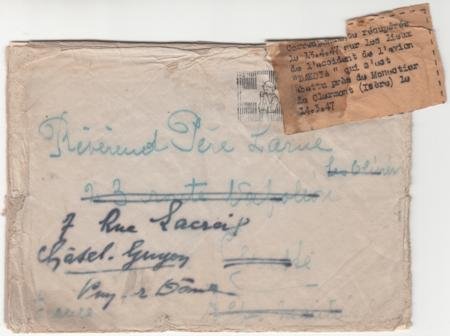 Correspondance récupérée
le 13.4.47 sur les lieux
de l'accident de l'avion
"DAKOTA" qui s'est
abattu près de Monestier
de Clermont (Isère) le
14.3.47
Révérend Père Larue
les Oliviers
23 route Napoléon
7 Rue Lacroix
Châtel-Guyon
Puy-de-Dôme
France